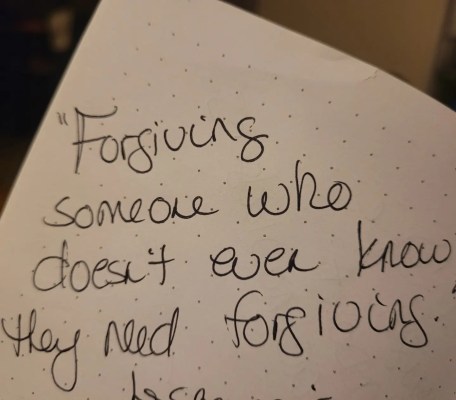 "Forgiving
someone who
doesn't even know
they need forgiving."